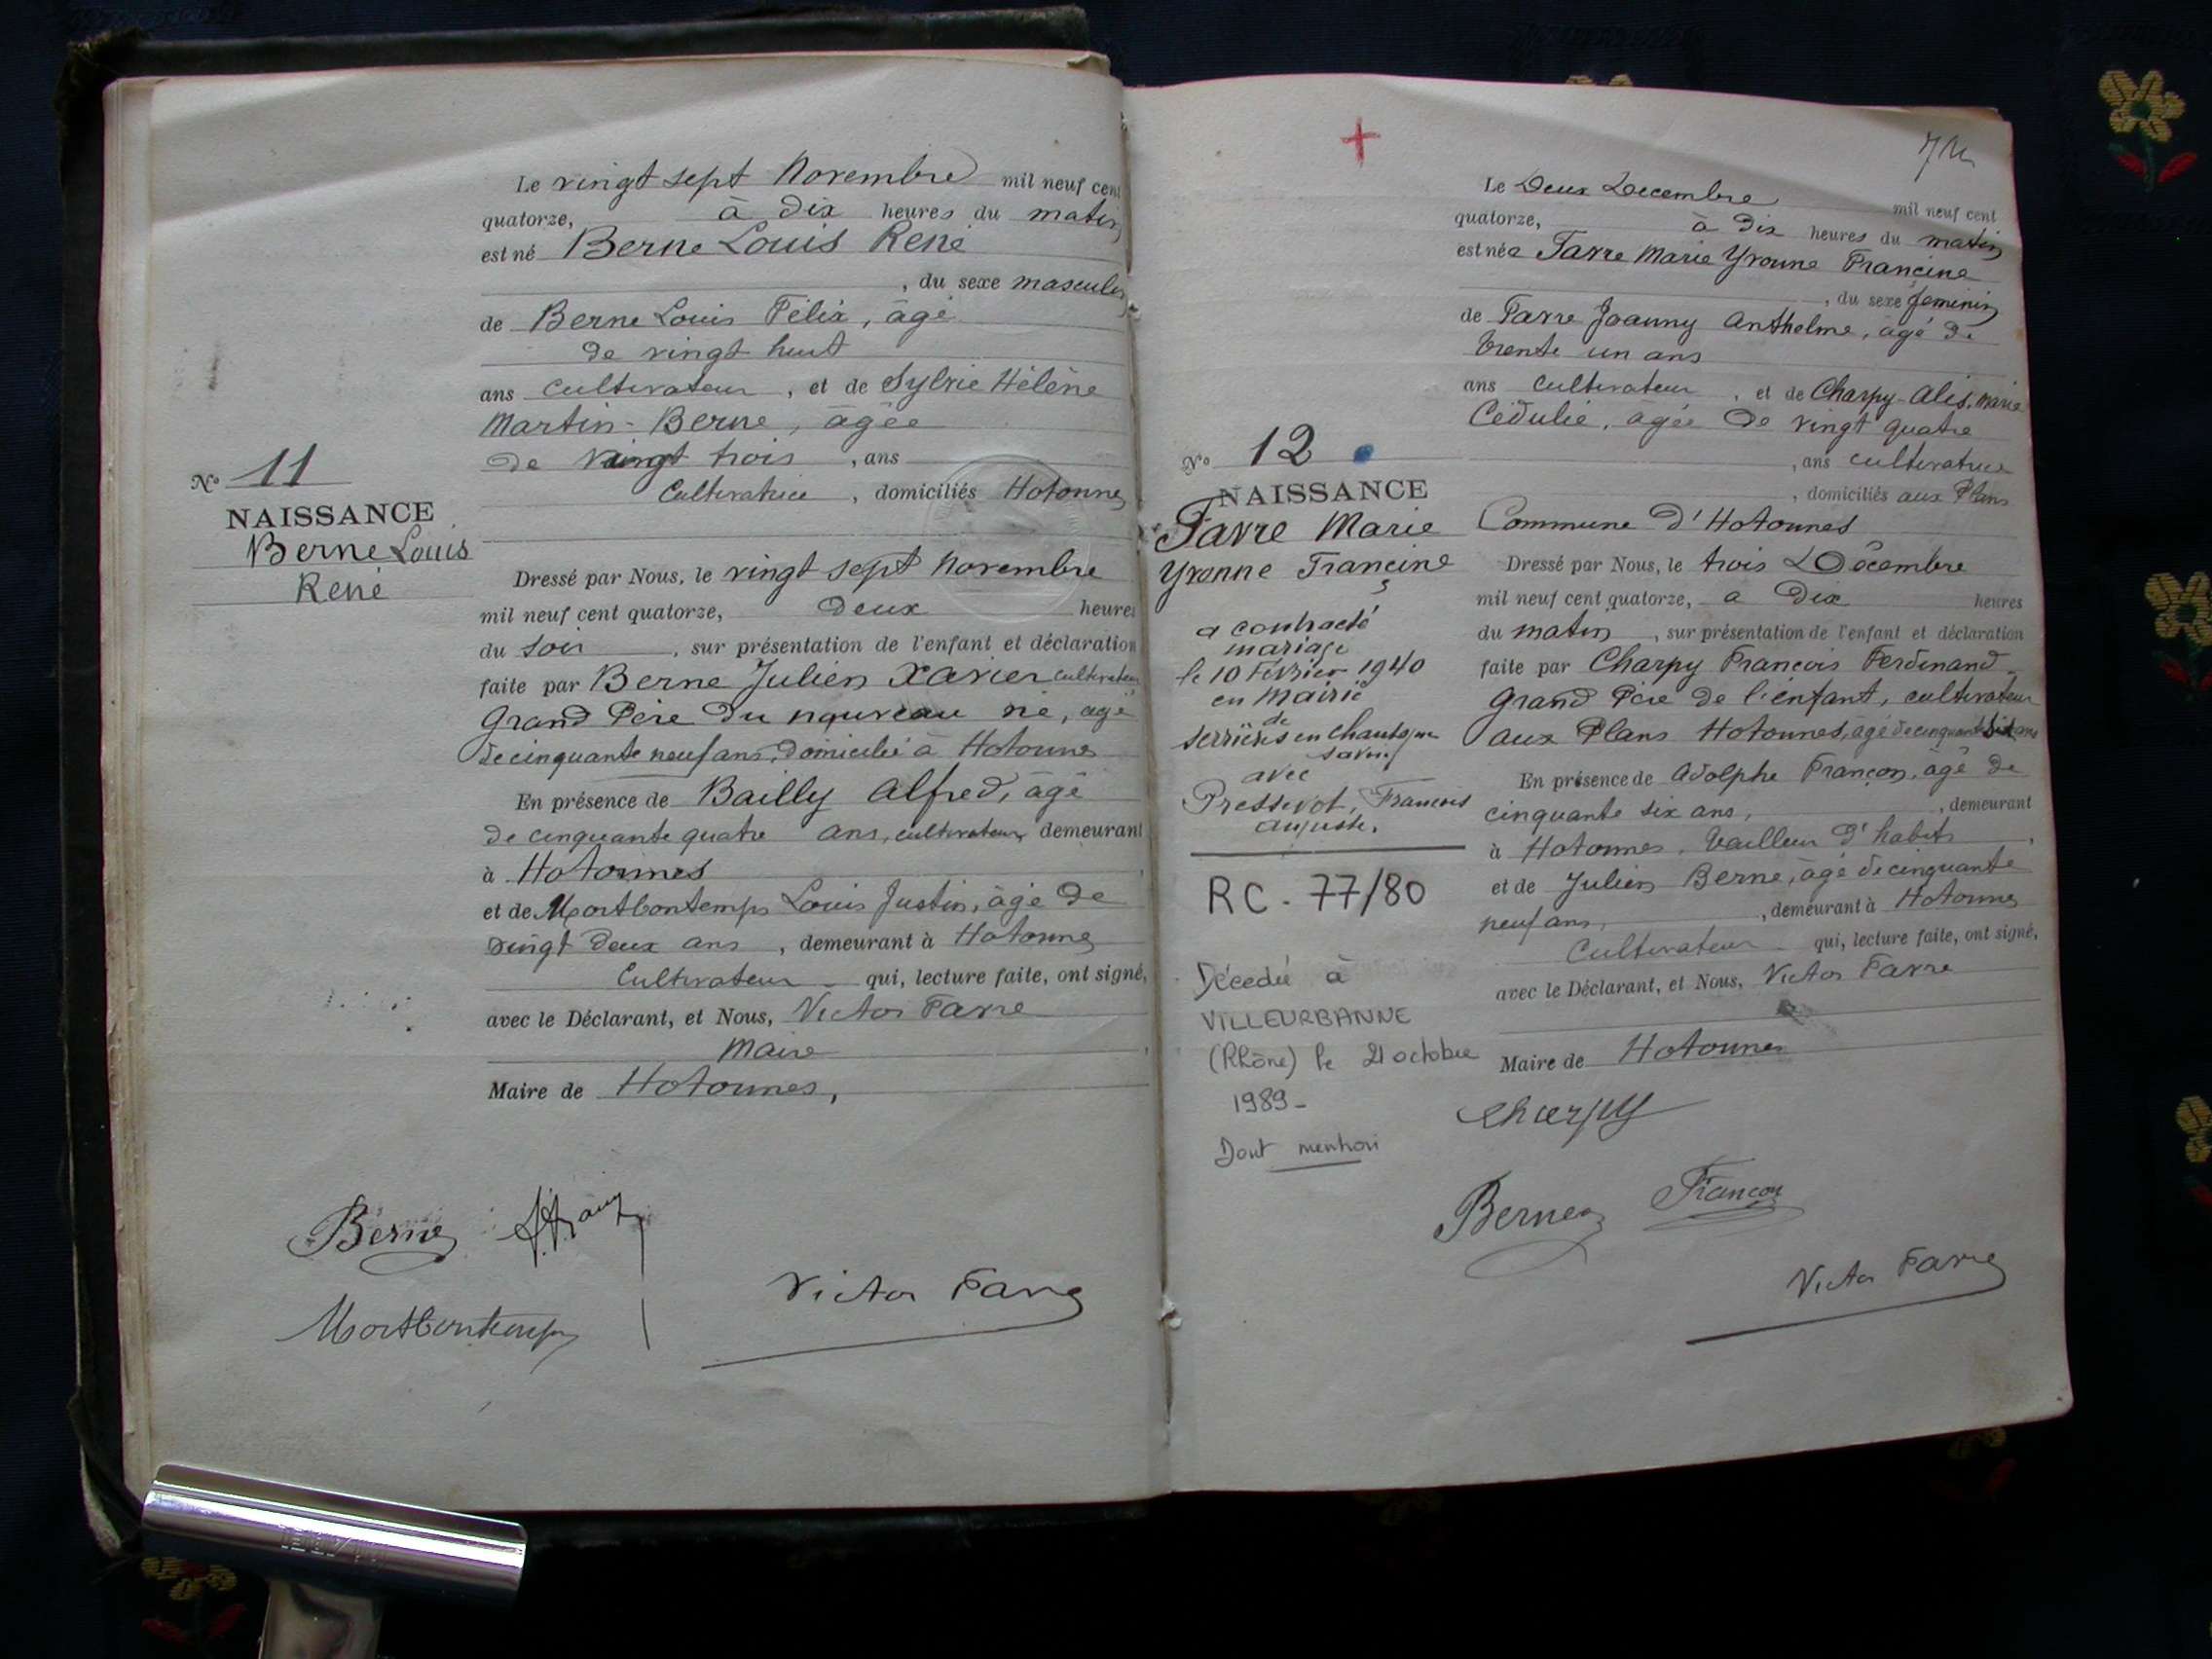 Le vingt sept Novembre mil neuf cent
quatorze, à dix heures du matin
est né Berne Louis René
, du sexe masculin
de Berne Louis Félix, âgé
de vingt huit
ans cultivateur, et de Sylvie Hélène
Martin-Berne, âgée
de vingt trois, ans
Cultivatrice, domiciliés Hotonnes
No 11
NAISSANCE
Berne Louis
René
Dressé par Nous, le vingt sept Novembre
mil neuf cent quatorze, deux heures
du soir, sur présentation de l'enfant et déclaration
faite par Berne Julien Xavier cultivateur
Grand Père du nouveau né, âgé
de cinquante neuf ans, domicilié à Hotonnes
En présence de Bailly Alfred, âgé
de cinquante quatre ans, cultivateur demeurant
à Hotonnes
et de Montbontemps Louis Justin, âgé de
vingt deux ans, demeurant à Hotonnes
Cultivateur qui, lecture faite, ont signé,
avec le Déclarant, et Nous, Victor Favre
Maire
Maire de Hotonnes,
Berne
Victor Favre
+
Le Deux Decembre mil neuf cent
quatorze, à Dix heures du matin
est née Favre Marie Yvonne Francine
, du sexe feminin
de Favre Joanny Anthelme, âgé de
trente un ans
ans cultivateur, et de Charpy Alis, Marie
Cédulie, âgée de vingt quatre
, ans cultivatrice
, domiciliés aux Plans
Commune d'Hotonnes
No 12
NAISSANCE
Favre Marie
Yvonne Francine
a contracté
mariage
le 10 Février 1940
en Mairie
de
Serrières en Chautagne
Savoie
avec
Pressevot, Francois
Auguste.
RC - 77/80
Décedée à
VILLEURBANNE
(Rhône) le 21 octobre
1989 -
Dont mention
Dressé par Nous, le trois Décembre
mil neuf cent quatorze, a Dix heures
du matin, sur présentation de l'enfant et déclaration
faite par Charpy François Ferdinand
Grand Père de l'enfant, cultivateur
aux Plans Hotonnes, âgé de cinquante ans
En présence de Adolphe Françon, âgé de
cinquante six ans, demeurant
à Hotonnes, tailleur d'habits,
et de Julien Berne, âgé de cinquante
neuf ans, demeurant à Hotonnes
Cultivateur qui, lecture faite, ont signé,
avec le Déclarant, et Nous, Victor Favre
Maire de Hotonnes
Charpy
Berne Françon
Victor Favre